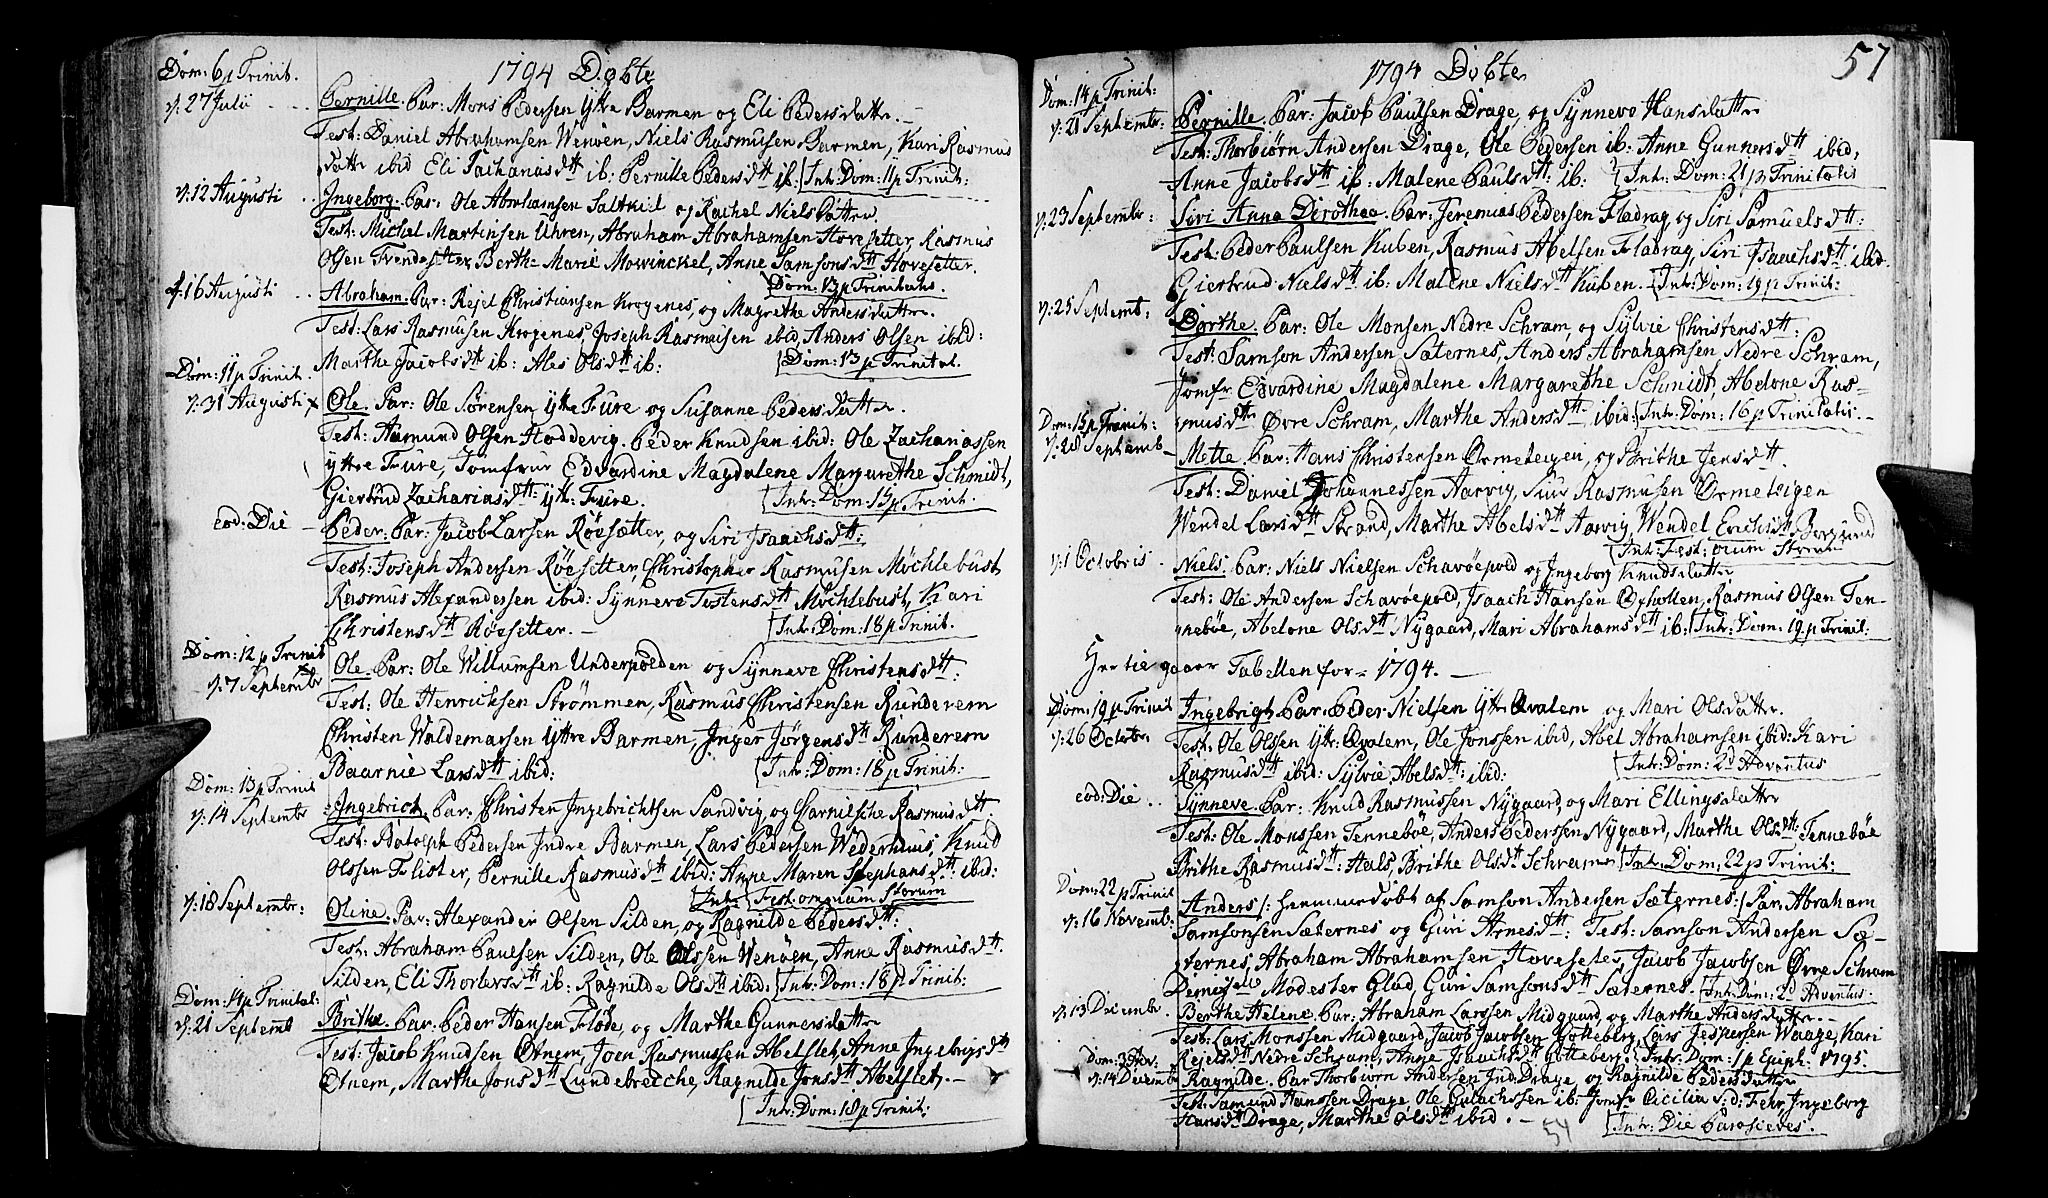 1794 Döbte
Dom: 6 p Trinit.
d: 27 Julii
Pernille. Par: Mons Pedersen Yttre Barmen og Eli Pedersdatter. –
Test: Daniel Abrahamsen Wenöen, Niels Rasmusen Barmen, Kari Rasmus
datter ibid Eli Zachariasdtt ib: Pernille Pedersdtt ib: Intr: Dom: 11 p Trinit:
d: 12 Augusti
Ingeborg. Par: Ole Abrahamsen Saltkiel og Rachel Nielsdatter.
Test: Michel Martinsen Uhren, Abraham Abrahamsen Hovesetter, Rasmus
Olsen Trendesetter, Berthe Marie Mowinckel, Anne Samsonsdtt Hovesetter.
Dom: 13 p Trinitatis.
d: 16 Augusti
Abraham. Par: Rejel Christiansen Krogenes, og Magrethe Andersdatter.
Test: Lars Rasmusen Krogenes, Joseph Rasmusen ibid, Anders Olsen ibid:
Marthe Jacobsdtt ib: Ales Olsdtt ib: Dom: 13 p Trinitat.
Dom: 11 p Trinit.
d: 31 Augusti
Ole. Par: Ole Sörensen Yttre Fure og Susanne Pedersdatter.
Test: Aamund Olsen Hoddevig. Peder Knudsen ibid: Ole Zachariassen
yttre Fure, Jomfrur Edvardine Magdalene Margarethe Schmidt,
Giertrud Zachariasdtt: ytt: Fure. Intr: Dom: 14 p Trinit.
eod: Die –
Peder. Par: Jacob Larsen Röesetter, og Siri Isaachsdtt:
Test: Joseph Andersen Röesetter, Christopher Rasmusen Mochlebust
Rasmus Alexandersen ibid: Synneve Tostensdtt Mochlebust, Kari
Christensdtt Röesetter. – Intr: Dom: 18 p Trinit.
Dom: 12 p Trinit
d: 7 Septembr
Ole. Par: Ole Willumsen Underpolden og Synneve Christensdtt:
Test: Ole Henricksen Strömmen, Rasmus Christensen Runderem
Christen Waldemarsen Yttre Barmen, Inger Jörgensdtt Runderem
Baarnie Larsdtt ibid: Intr: Dom: 18 p Trinit:
Dom: 13 p Trinit
d: 14 Septembr
Ingebrict. Par: Christen Ingebrichtsen Sandvig, og Carnilsche Rasmusdtt.
Test: Botolph Pedersen Indre Barmen, Lars Pedersen Wederhuus, Knud
Olssen Flister, Pernille Rasmusdtt ibid: Anne Maren Stephansdtt: ibid:
Intr: Fest: omnium Storum
d: 18 Septembr:
Oline. Par: Alexander Olsen Silden, og Ragnilde Pedersdtt:
Test: Abraham Paulsen Silden, Ole Olssen Wenöen, Anne Rasmusdtt.
Silden, Eli Thorlersdtt ib: Ragnilde Olsdtt ibid: Intr: Dom: 18 p Trinit:
Dom: 14 p Trinitat:
d: 21 Septemb
Brithe. Par. Peder Hansen Flöde, og Marthe Gunnersdatter
Test: Jacob Knudsen Otnem, Joen Rasmussen Abelslet, Anne Ingebrigsdtt
Otnem, Marthe Jonsdtt Lundebrecche, Ragnilde Jonsdtt Abelslet. –
Intr: Dom: 18 p Trinit:
1794 Döbte
57
Dom: 14 p Trinit:
d: 21 Septembr:
Pernille. Par: Jacob Paulsen Drage, og Synnevo Hansdatter
Test: Thorbiörn Andersen Drage, Ole Pedersen ib: Anne Gunnersdtt ibid,
Anne Jacobsdtt ib: Malene Paulsdtt: ib: Intr: Dom: 21 p Trinitatis
d: 23 Septembr:
Siri Anna Dirothea. Par: Jeremias Pedersen Fladrag, og Siri Samuelsdtt:
Test: Peder Paulsen Kuben, Rasmus Abelsen Fladrag, Siri Isaachsdtt: ibid.
Giertrud Nielsdtt ib: Malene Nielsdtt Kuben. Intr: Dom: 19 p Trinit:
d: 25 Septemt:
Dorthe. Par: Ole Monsen Nedre Schram, og Sylvie Christensdtt:
Test: Samson Andersen Sæternes, Anders Abrahamsen Nedre Schram,
Jomfr Edvardine Magdalene Margarethe Schmidt, Abelone Ras-
musdtr Övre Schram, Marthe Andersdtt ibid: Intr: Dom: 16 p Trinitatis. –
Dom: 15 p Trinit:
d: 28 Septemb –
Mette. Par: Hans Christensen Ormeteigen, og Brithe Jensdtt.
Test: Daniel Johannessen Aarvig, Siur Rasmusen Ormeteigen
Wendel Larsdtt Strand, Marthe Abelsdtt Aarvig, Wendel Erichsdtt Borgund
Intr: Fest: oium Storum
d: 1 Octobris
Niels. Par: Niels Nielsen Schavöepold og Ingeborg Knudsdatter
Test: Ole Andersen Schavöepold, Isaach Hansen Osthollen, Rasmus Olsen Ten-
neböe, Abelone Olsdtt Nygaard, Mari Abrahamsdtt ib: Intr: Dom: 19 p Trinit:
Her tie gaaer Tabellen for – 1794. –
Dom: 19 p Trinit
d: 26 Octobr
Ingebrigt. Par. Peder Nielsen Yttr Qvalem og Mari Olsdatter.
Test: Ole Olssen Yttr: Qvalem, Ole Jonssen ibid, Abel Abrahamsen ibid: Kari
Rasmusdtt ibid: Sylvie Abelsdtt: ibid: Intr: Dom: 2d Adventus
eod: Die ..
Synneve. Par: Knud Rasmussen Nygaard, og Mari Ellingsdatter
Test: Ole Monssen Tenneböe, Anders Pederssen Nygaard, Marthe Olsdtt: Tenneböe
Brithe Rasmusdtt: Hals, Brithe Olsdtt Schreunen Intr: Dom: 22 p Trinit:
Dom: 22 p Trinit
d: 16 Novemb:
Anders /: hiemmedöbt af Samson Andersen Sæternes :/ Par. Abraham
Samsonsen Sæternes og Guri Arnesdtt: Test: Samson Andersen Sæ-
ternes, Abraham Abrahamsen Hovesetes, Jacob Jacobsen Övre Schram
Demoiselle Modester Glad, Guri Samsonsdtt Sæternes. Intr: Dom: 2d Adventus:
d: 13 Decembr.
Berthe Helene Par: Abraham Larssen Midgaard, og Marthe Andersdatter –
Test: Lars Monssen Midgaard, Jacob Jacobsen Gotteberg, Lars Jespersen Waage, Kari
Rejelsdtt Nedre Schram, Anne Isaachsdtt Gotteberg. Intr: Dom: 1 p Epiph: 1795.
Dom: 3 Adv:
d: 14 Decemb
Ragnilde. Par Thorbiörn Andersen Ind: Drage, og Ragnilde Pedersdatter
Test: Samund Hanssen Drage, Ole Gulachssen ib: Jomfr Cecilia S: d: Fehr, Ingeborg
Hansdtt Drage, Marthe Olsdtt ibid. – Intr: Die Parasceves.
54